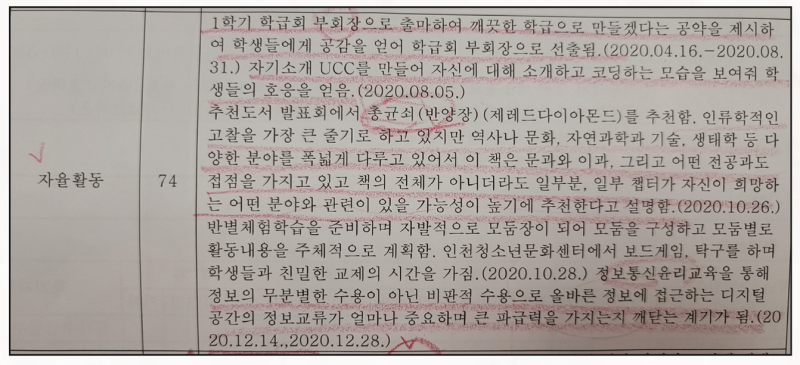 1학기 학급회 부회장으로 출마하여 깨끗한 학급으로 만들겠다는 공약을 제시하
여 학생들에게 공감을 얻어 학급회 부회장으로 선출됨.(2020.04.16.-2020.08.
31.) 자기소개 UCC를 만들어 자신에 대해 소개하고 코딩하는 모습을 보여줘 학
생들의 호응을 얻음.(2020.08.05.)
추천도서 발표회에서 총균쇠(반양장)(제레드다이아몬드)를 추천함. 인류학적인
고찰을 가장 큰 줄기로 하고 있지만 역사나 문화, 자연과학과 기술, 생태학 등 다
양한 분야를 폭넓게 다루고 있어서 이 책은 문과와 이과, 그리고 어떤 전공과도
자율활동 74 접점을 가지고 있고 책의 전체가 아니더라도 일부분, 일부 챕터가 자신이 희망하
는 어떤 분야와 관련이 있을 가능성이 높기에 추천한다고 설명함.(2020.10.26.)
반별체험학습을 준비하며 자발적으로 모둠장이 되어 모둠을 구성하고 모둠별로
활동내용을 주체적으로 계획함. 인천청소년문화센터에서 보드게임, 탁구를 하며
학생들과 친밀한 교제의 시간을 가짐.(2020.10.28.) 정보통신윤리교육을 통해
정보의 무분별한 수용이 아닌 비판적 수용으로 올바른 정보에 접근하는 디지털
공간의 정보교류가 얼마나 중요하며 큰 파급력을 가지는지 깨닫는 계기가 됨.(20
20.12.14.,2020.12.28.)